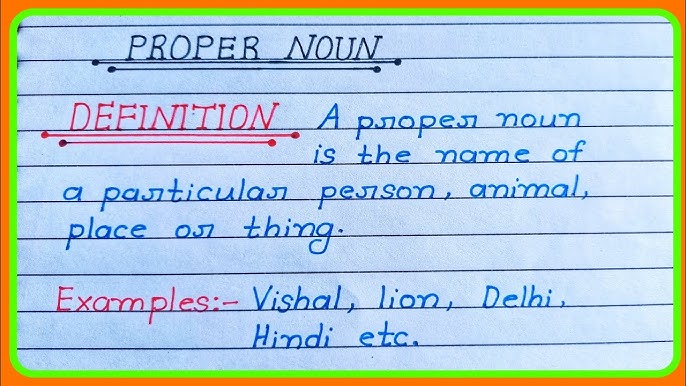 PROPER NOUN
DEFINITION A proper noun
is the name of
a particular person, animal,
place or thing.
Examples:- Vishal, lion, Delhi,
Hindi etc.